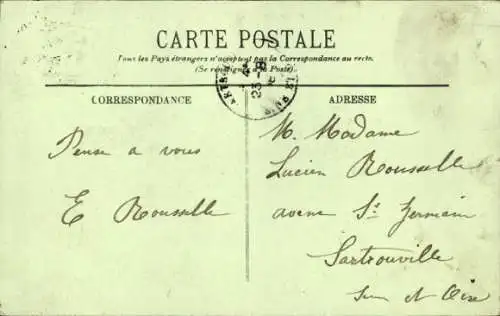 CARTE POSTALE
Tous les Pays étrangers n'acceptent pas la Correspondance au recto.
(Se renseigner à la Poste).
CORRESPONDANCE
Pense a vous
E Rousselle
ADRESSE
M. Madame
Lucien Rousselle
avenue St Germain
Sartrouville
Seine et Oise